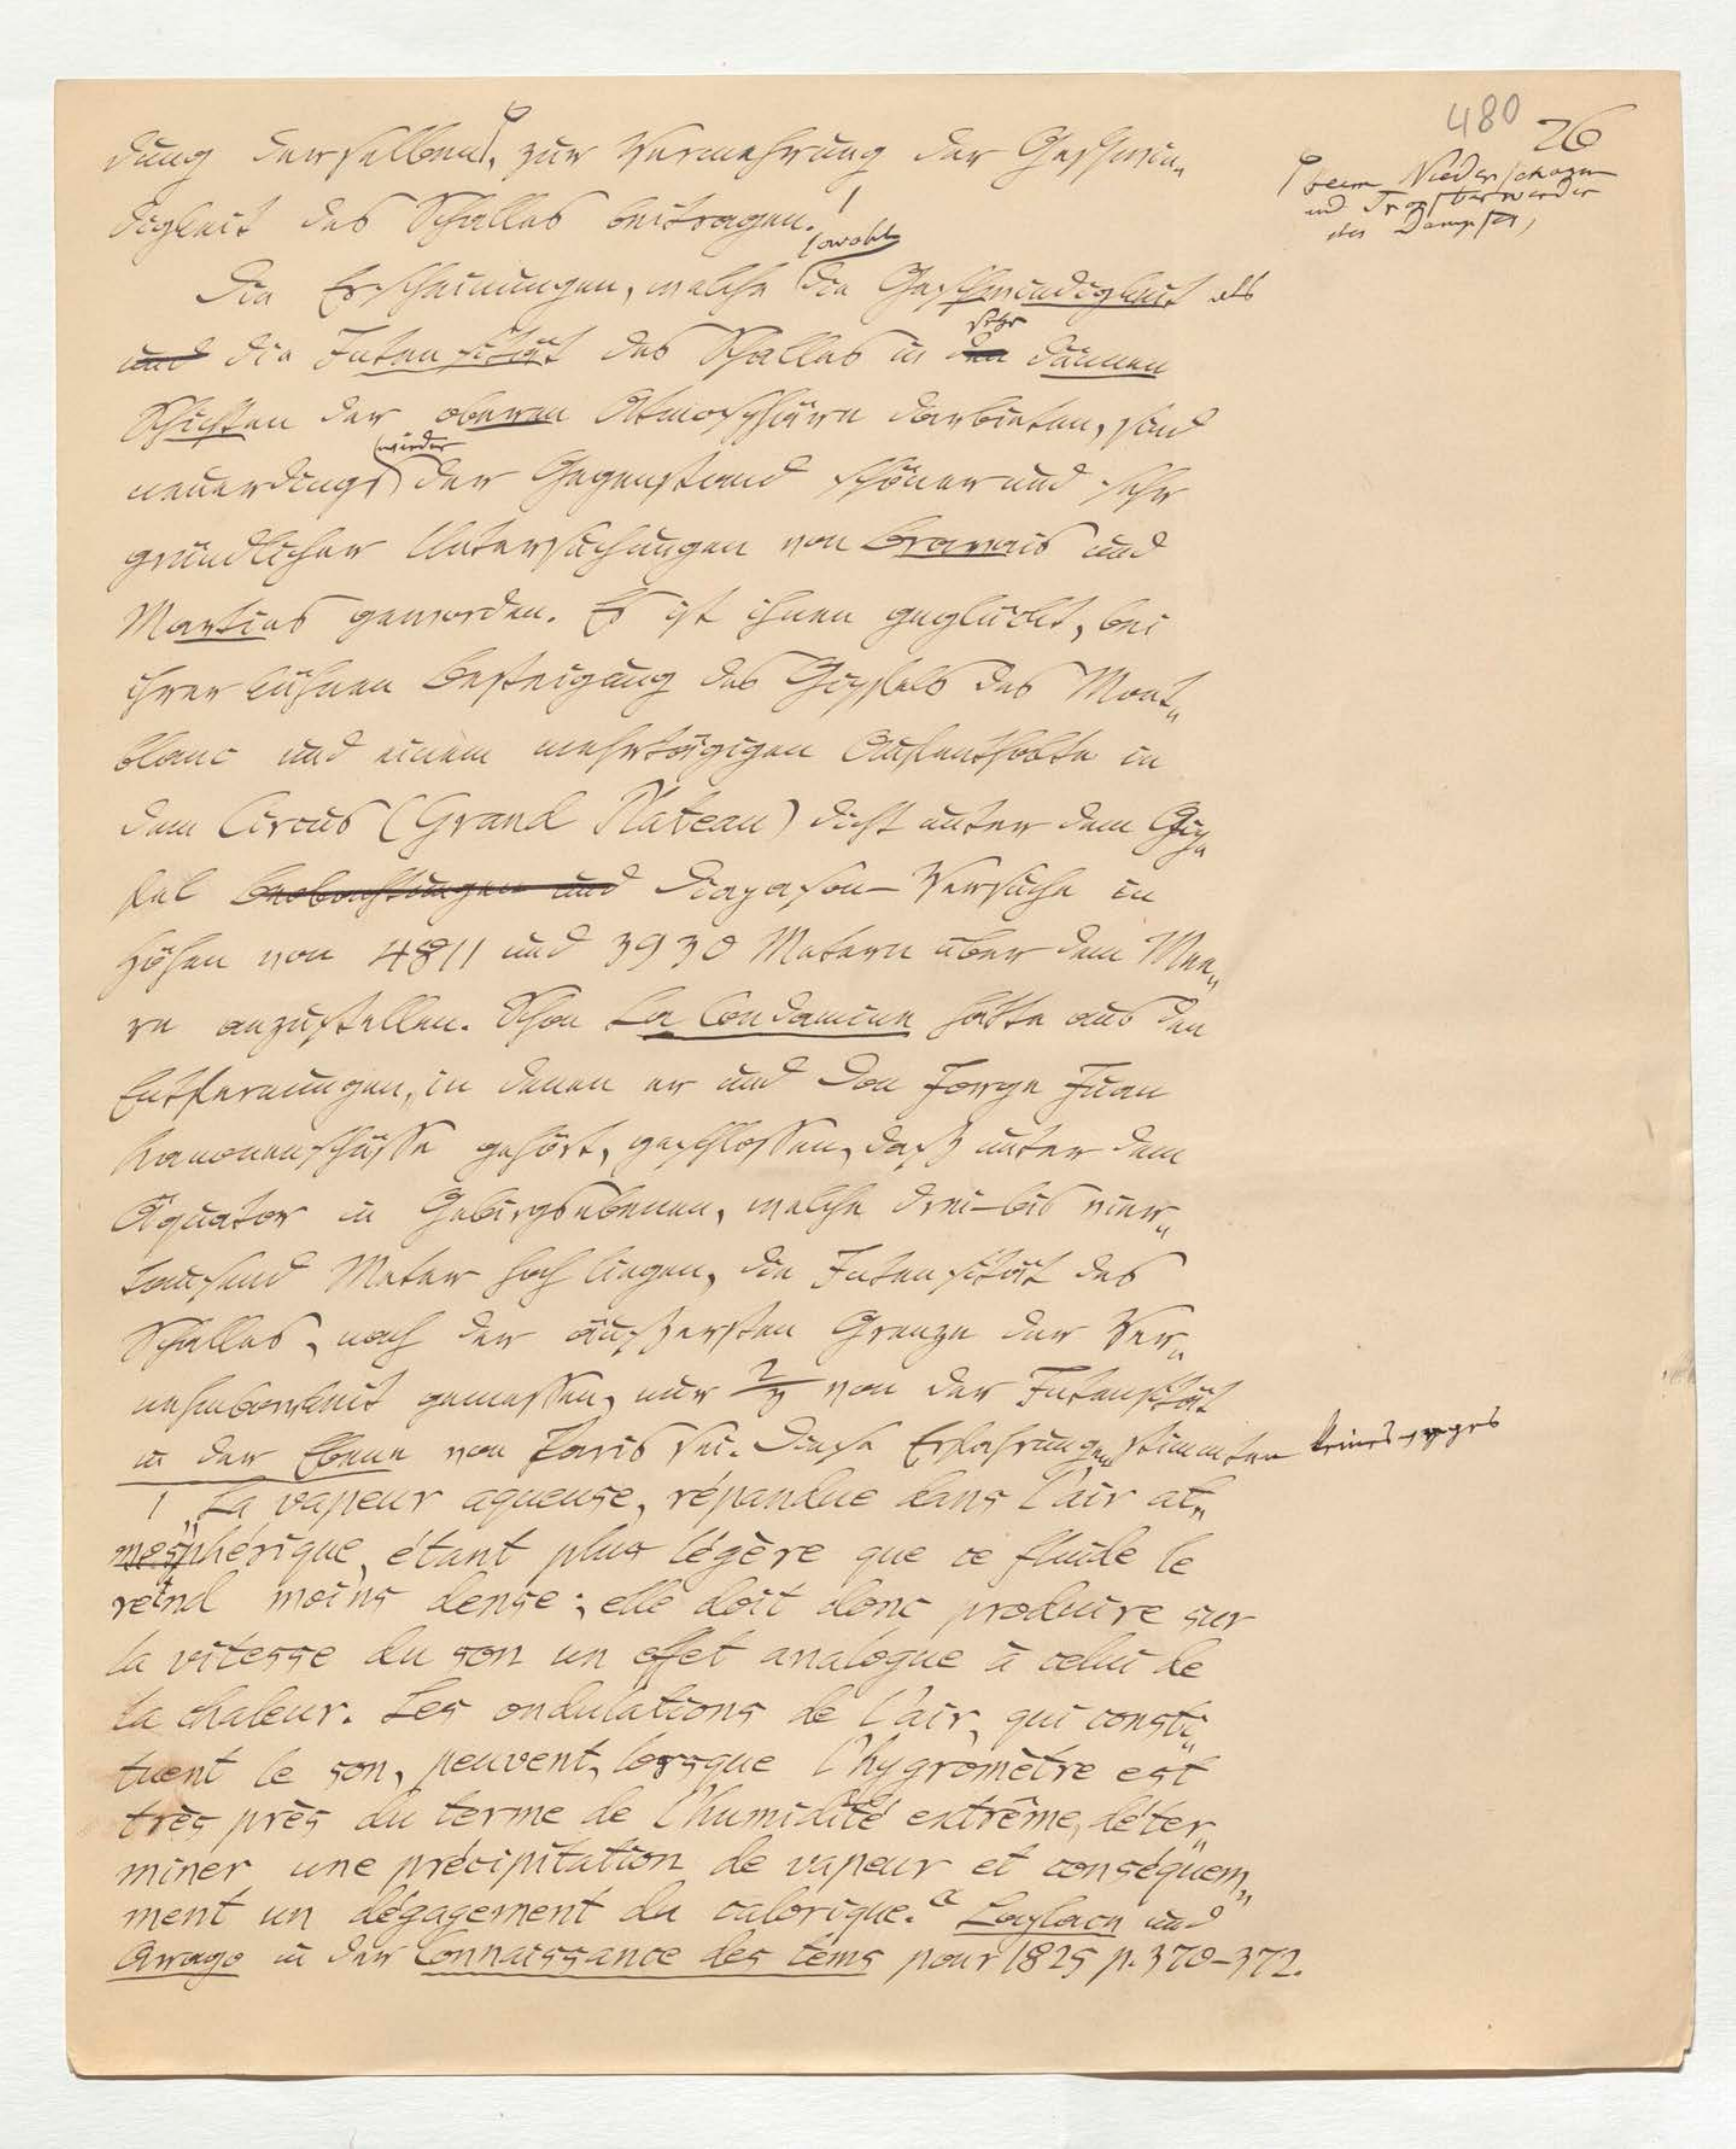 480 26
dung derselben, zur Vermehrung der Geschwin„
digkeit des Schalles beitragen.¹
beim Niederschlagen
und Tropfbarwerden
des Dampfes,
sowohl
Die Erscheinungen, welche die Geschwindigkeit als
sehr
und die Intensität des Schalles in den dünnen
Schichten der oberen Atmosphäre darbieten, sind
wieder
neuerdings der Gegenstand schöner und sehr
gründlicher Untersuchungen von Bravais und
Martins geworden. Es ist ihnen geglückt, bei
ihrer kühnen Besteigung des Gipfels des Mont„
blanc und einem mehrtägigen Aufenthalte in
dem Circus (Grand Plateau) dicht unter dem Gip„
fel Beobachtungen und Diapason-Versuche in
Höhen von 4811 und 3930 Metern über dem Mee„
re anzustellen. Schon La Condamine hatte aus den
Entfernungen, in denen er und Don Jorge Juan
Kanonenschüsse gehört, geschlossen, daß unter dem
Äquator in Gebirgsebenen, welche drei-bis vier„
tausend Meter hoch liegen, die Intensität des
Schalles, nach der äußersten Grenze der Ver„
nehmbarkeit gemessen, nur 2/3 von der Intensität
in der Ebene von Paris sei. Diese Erfahrungen stimmten keinesweges
1 „La vapeur aqueuse, répandue dans l'air at„
mosphérique, étant plus légère que ce fluide le
rend moins dense; elle doit donc produire sur
la vitesse du son un effet analogue à celui de
la chaleur. Les ondulations de l'air, qui consti„
tuent le son, peuvent, lorsque l'hygromètre est
très près du terme de l'humidité extrême, déter„
miner une précipitation de vapeur et conséquem„
ment un dégagement du calorique.“ Laplace und
Arago in der Connaissance des tems pour 1825 p. 370-372.